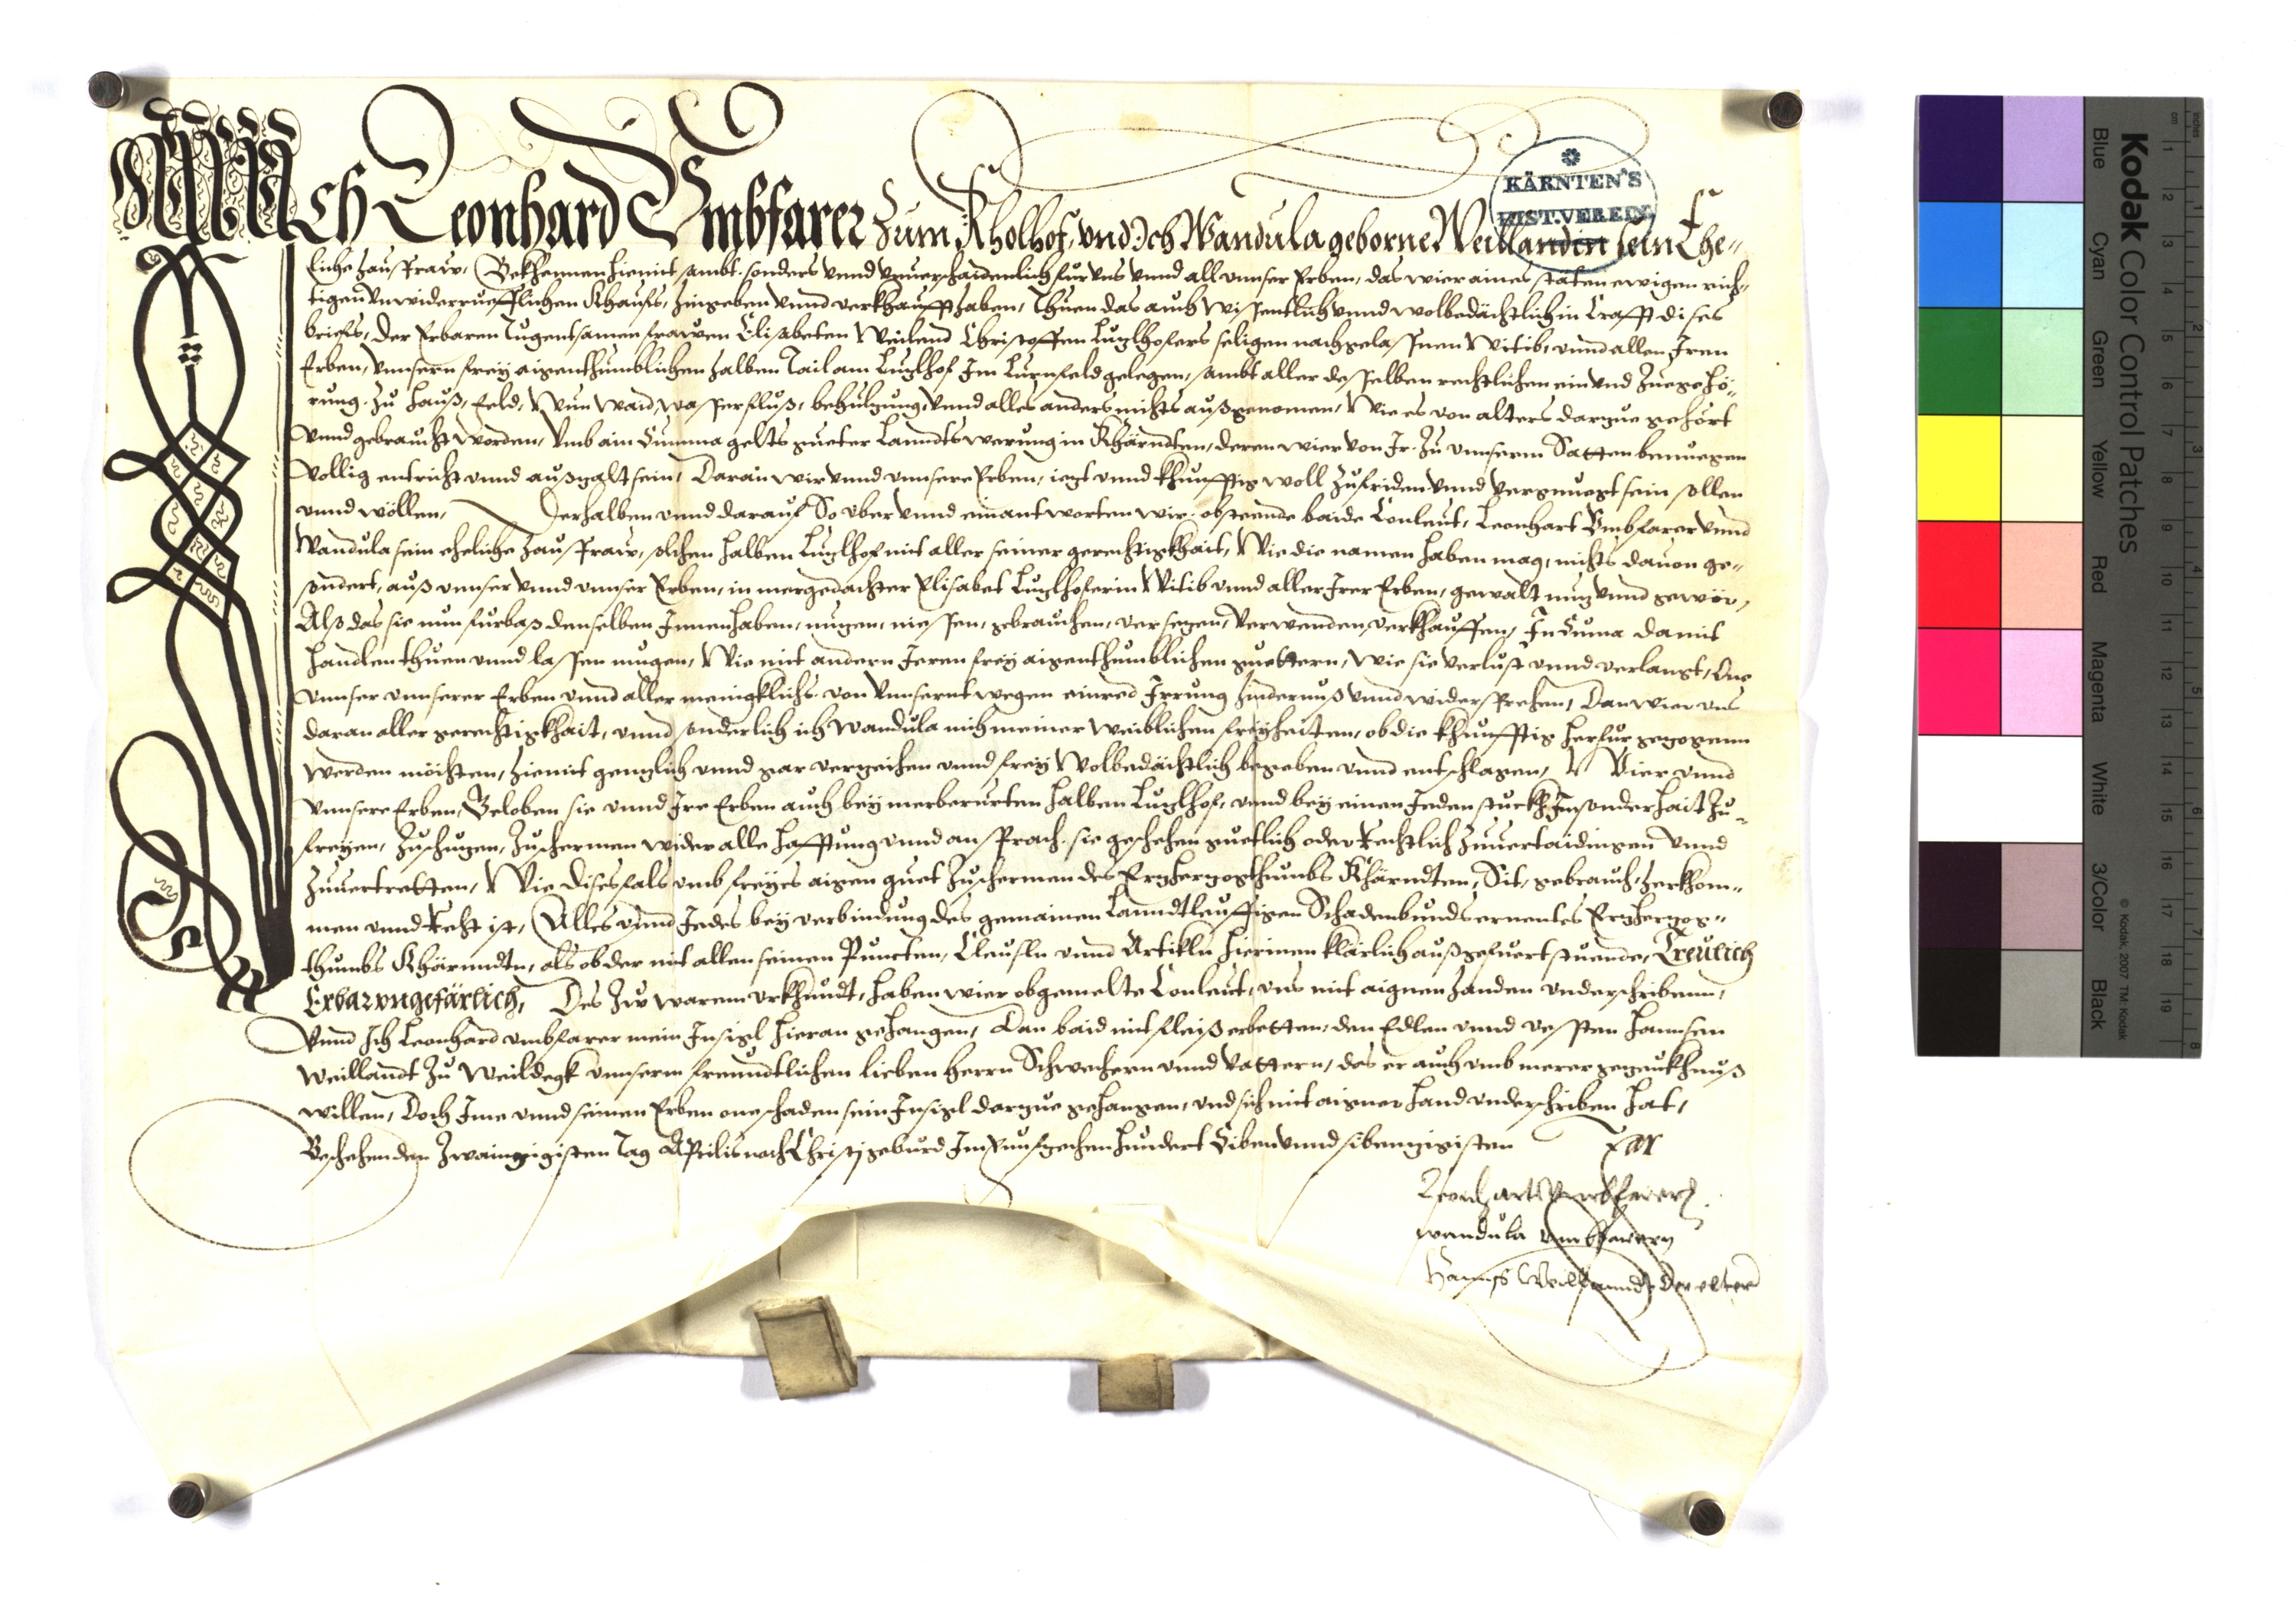 Ich Leonhard Vmbfarer zum Kholhof, vnd Ich Wandula geborne Weillandin sein Ehe„
KÄRNTEN'S
HIST. VEREIN
liche hausfraw, Bekhennen hiemit sambt, sonders vnnd vnuerschaidenlich fur vns vnnd all vnnser Erben, das wier aines stäten ewigen rich„
tigen vnwiderrueflichen Khaufs, hingeben vnnd verkhaufft haben, Thuen das auch wissentlich vnnd wolbedächtlich in Crafft dises
briefs, der Erbaren Tugentsamen frawen Elisabeten Weilend Christoffen Luglhofers seligen nachgelassnen Witib, vnnd allen Iren
Erben, vnnsern frey aigenthumblichen halben Tail am Luglhof Im Lurnfeld gelegen, sambt aller desselben rechtlichen ein vnd zuegehö„
rung, zu hauß, feld, Wun Waid, wasserfluß, behulzung, vnnd alles anders nichts außgenomen, Wie es von alters darzue gehört
vnnd gebraucht worden, Vmb ain Summa gelts gueter Lanndtswerung in Khärndten, deren wier von Ir zu vnnserm Satten benuegen
vollig entricht vnnd außzalt sein, Daran wir vnnd vnnsere Erben, iezt vnnd khunfftig woll zufriden vnnd vergnuegt sein sollen
vnnd wöllen, Derhalben vnnd darauf So vber vnnd einantworten wir obsteende baide Conleut, Leonhart Vmbfarer vnnd
Wandula sein eheliche hausfraw, solchen halben Luglhof mit aller seiner gerechtigkhait, Wie die namen haben mag, nichts dauon ge„
sondert, auß vnnser vnnd vnnser Erben, in mergedachter Elisabet Luglhoferin Witib vnnd aller Irer Erben, gewalt nuz vnnd gewör,
Alß das sie nun furbaß denselben Innenhaben, nuzen, niessen, gebrauchen, versezen, verwenden, verkhauffen, In Suma damit
handlen thuen vnnd lassen mugen, Wie mit andern Iren frey aigenthumblichen guettern, wie sie verlust vnnd verlangt, One
vnnser vnnserer Erben vnnd aller meingklichs von vnnsernt wegen einred Irrung hindernuß vnnd widersprechen, Dan wier vns
daran aller gerechtigkhait, vnnd sonderlich ich Wandula mich meiner Weiblichen freyheiten, ob die khunfftig herfur gezogenn
werden möchten, hiemit genzlich vnnd gar verzeihen vnnd frey Wolbedächtlich begeben vnnd entschlagen, Wier vnnd
vnnsere Erben, Geloben sie vnnd Ire Erben auch bey merberurten halben Luglhof, vnnd bey einen Jeden stuckh Insonderhait zu„
freyen, zuschuzen, zuschermen wider alle hafftung vnnd ansprach, sie geschehen guetlich oder Rechtlich zuuertaidingen vnnd
zuuertretten, Wie disesfals vmb freyes aigen guet zuschermen des Erzherzogthumbs Khärndten, Sit, gebrauch, herkhom„
men vnnd Recht ist, Alles vnnd Jedes bey verbindung des gemainen Lanndtleuffigen Schadenbunds ernentes Erzherzog„
thumbs Khärnndtn, als ob der mit allen seinen Puncten, Clausln vnnd Artikln hierinnen klärlich außgefuert stuende, Treulich
Erbar vngefärlich, Des zw warem vrkhundt, haben wier obgemelte Conleut, vns mit aignen handen vnderschribenn,
Vnnd Ich Leonhard vmbfarer mein Insigl hieran gehangen, Dan baid mit fleiß erbetten, den Edlen vnnd vessten Hannsen
Weillandt zu Weildegk vnnserm freundtlichen lieben herrn Schwehern vnnd vattern, das er auch vmb merer gezeukhnuß
willen, Doch Ime vnnd seinen Erben one schaden sein Insigl darzue gehangen, vnd sich mit aigner hand vnderschriben hat,
Beschehen den zwainzigisten Tag Aprilis nach Christi geburd Im funfzechenhundert Siben vnnd sibenzigisten Jar
Leonhart Vmbfarer
wandula vmbfarerin
Hanns Weillanndt der elter
Kodak Color Control Patches
Blue
Cyan
Green
Yellow
Red
Magenta
White
3/Color
Black
© Kodak, 2007 TM: Kodak
cm 1 2 3 4 5 6 7 8 9 10 11 12 13 14 15 16 17 18 19
inches 1 2 3 4 5 6 7 8